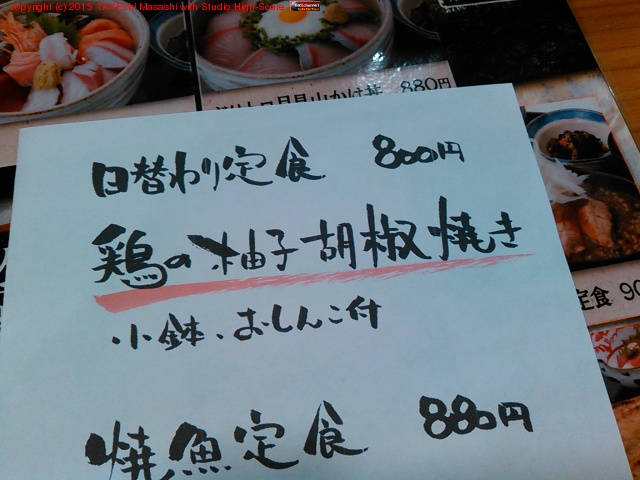 copyright (c) 2015 Takeuchi Masashi with Studio High-Score.
月見山かけ丼 880円
日替わり定食 800円
鶏の柚子胡椒焼き
・小鉢・おしんこ付
定食 90
焼魚定食 880円